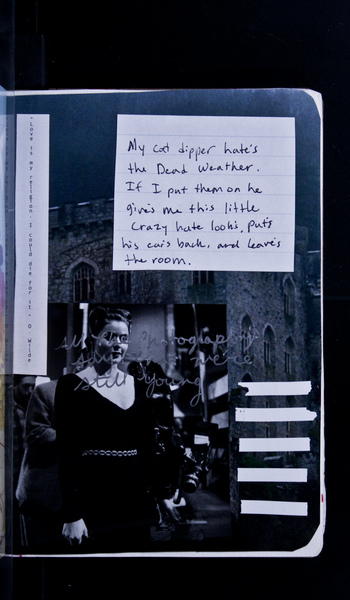 "Love is my religion. I could die for it - O. Wilde
My cat dipper hate's
the Dead Weather.
If I put them on he
give's me this little
crazy hate look's, put's
his ear's back, and leave's
the room.
still young